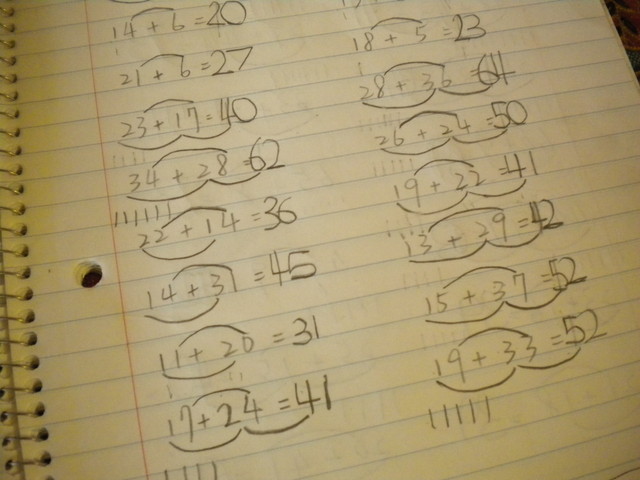 14 + 6 = 20
21 + 6 = 27
23 + 17 = 40
34 + 28 = 62
22 + 14 = 36
14 + 31 = 45
11 + 20 = 31
17 + 24 = 41
18 + 5 = 23
28 + 36 = 64
26 + 24 = 50
19 + 22 = 41
13 + 29 = 42
15 + 37 = 52
19 + 33 = 52